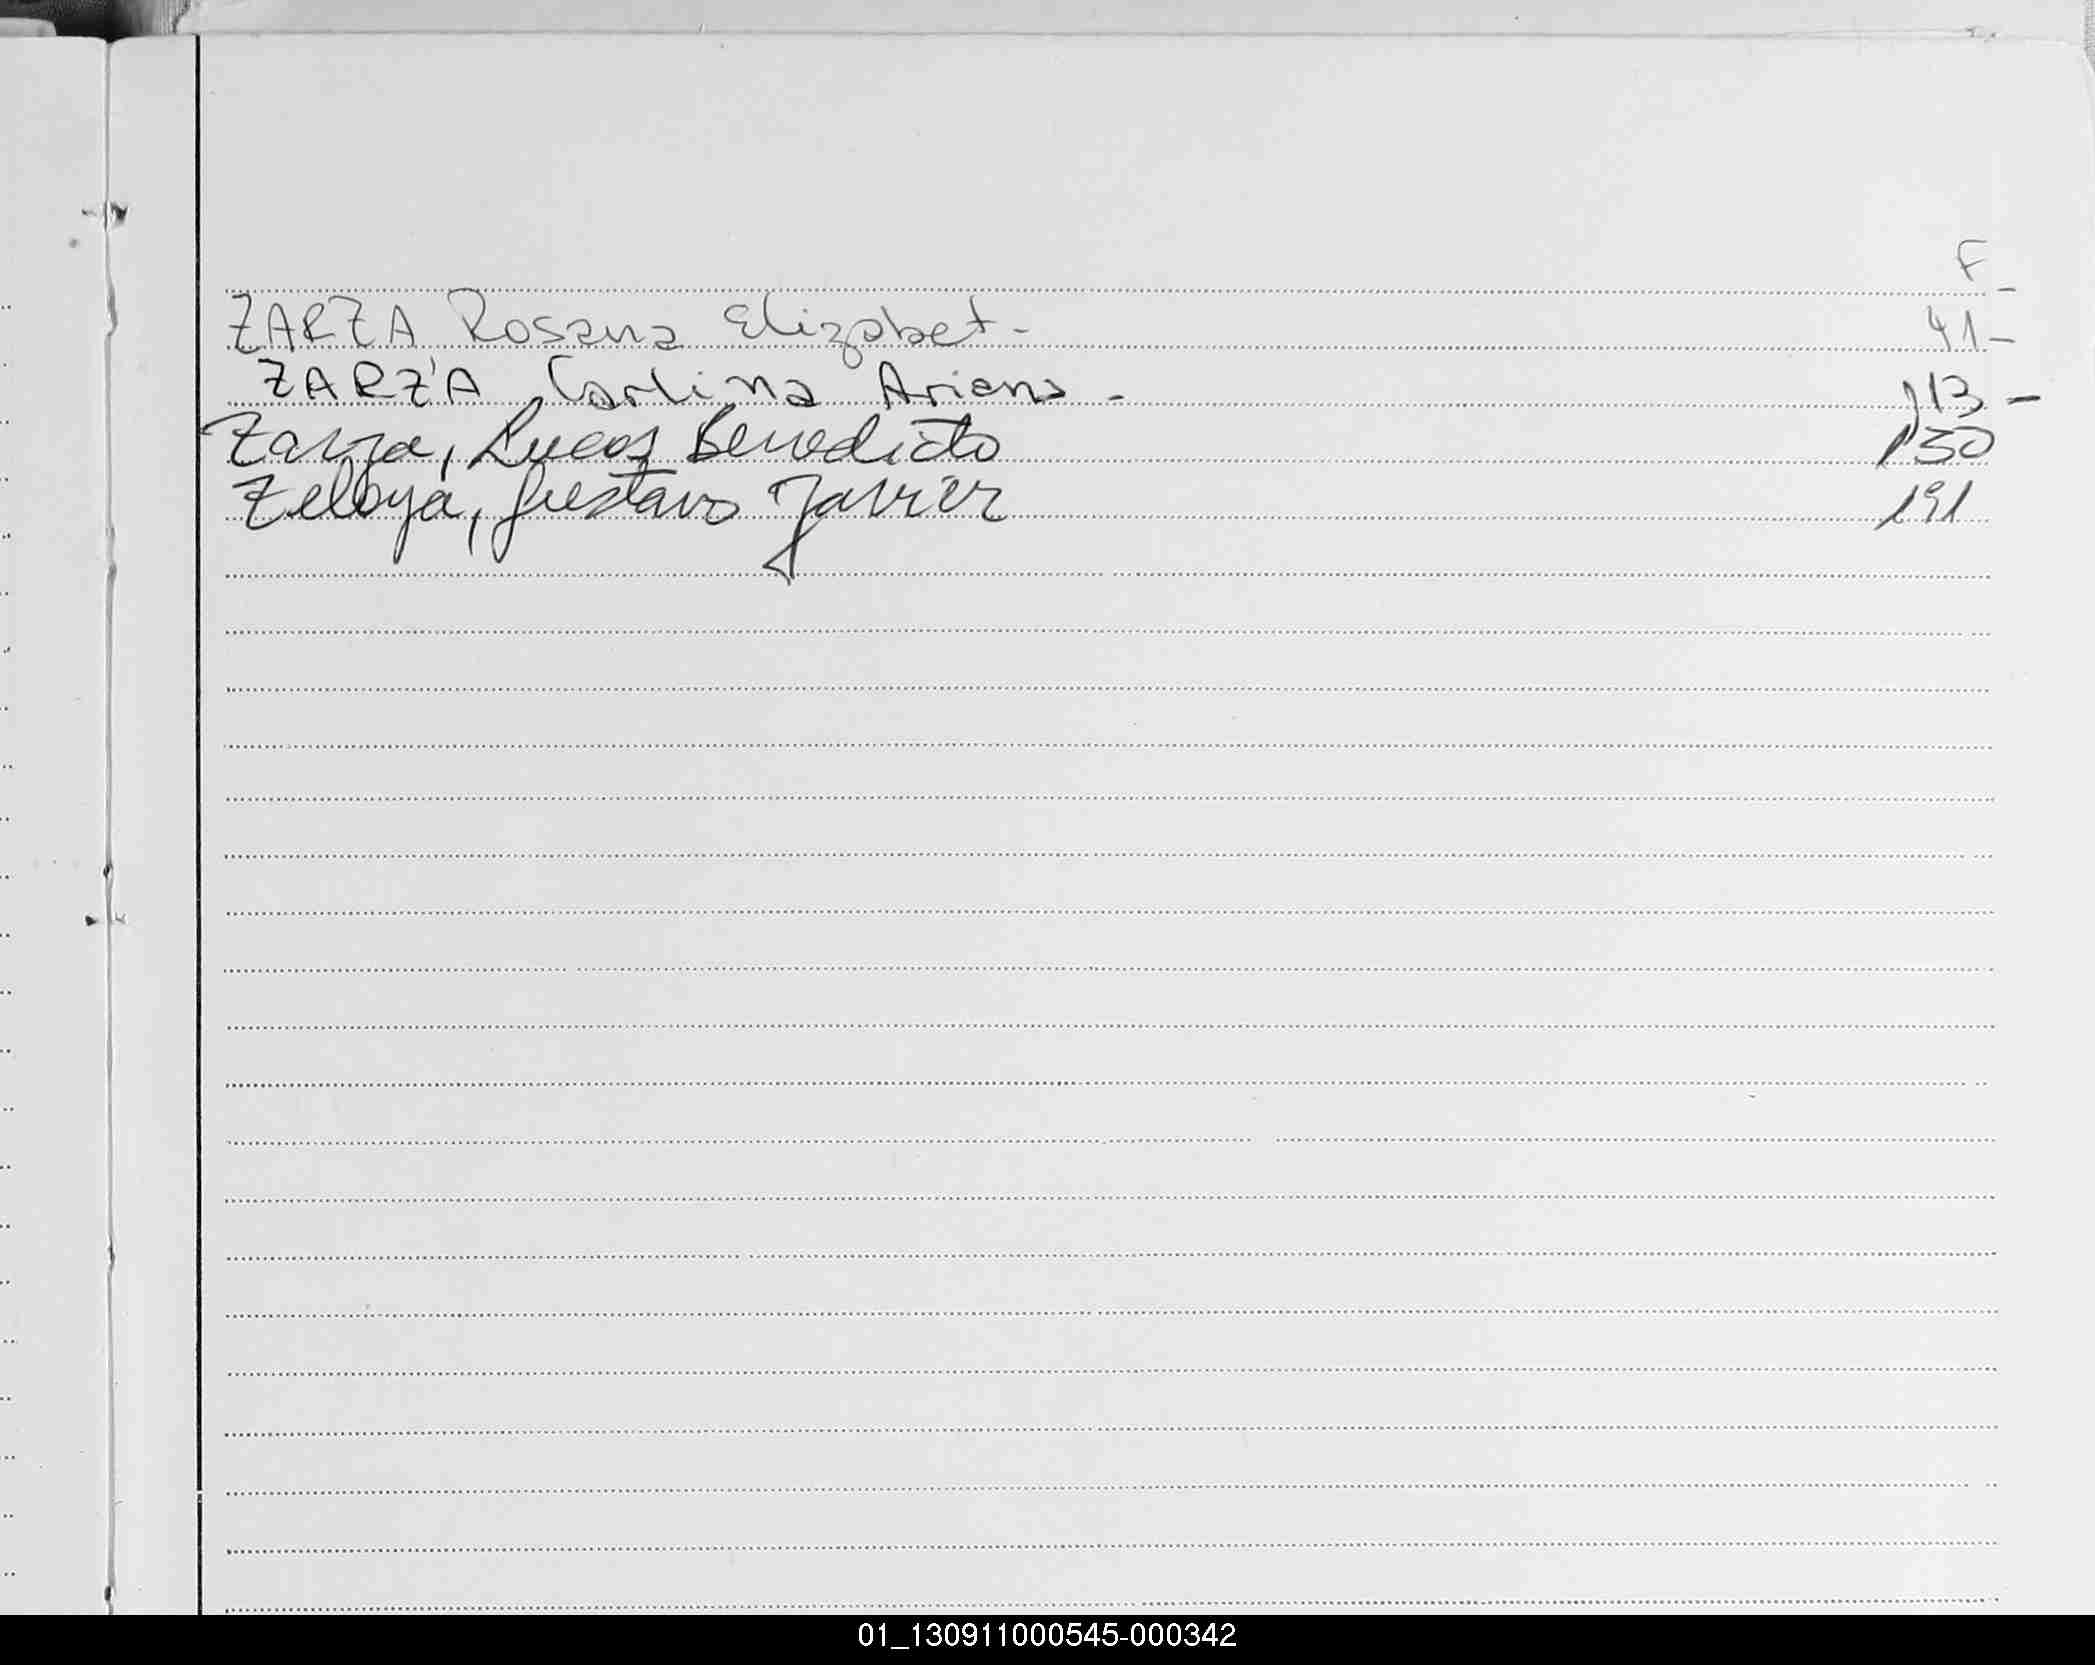 F_
ZARZA Rosana Elizabet - 41 -
ZARZA Carlina Ariana - 113 -
Zarza, Lucas Benedicto 130
Zelaya, Gustavo Javier 191
01_130911000545-000342